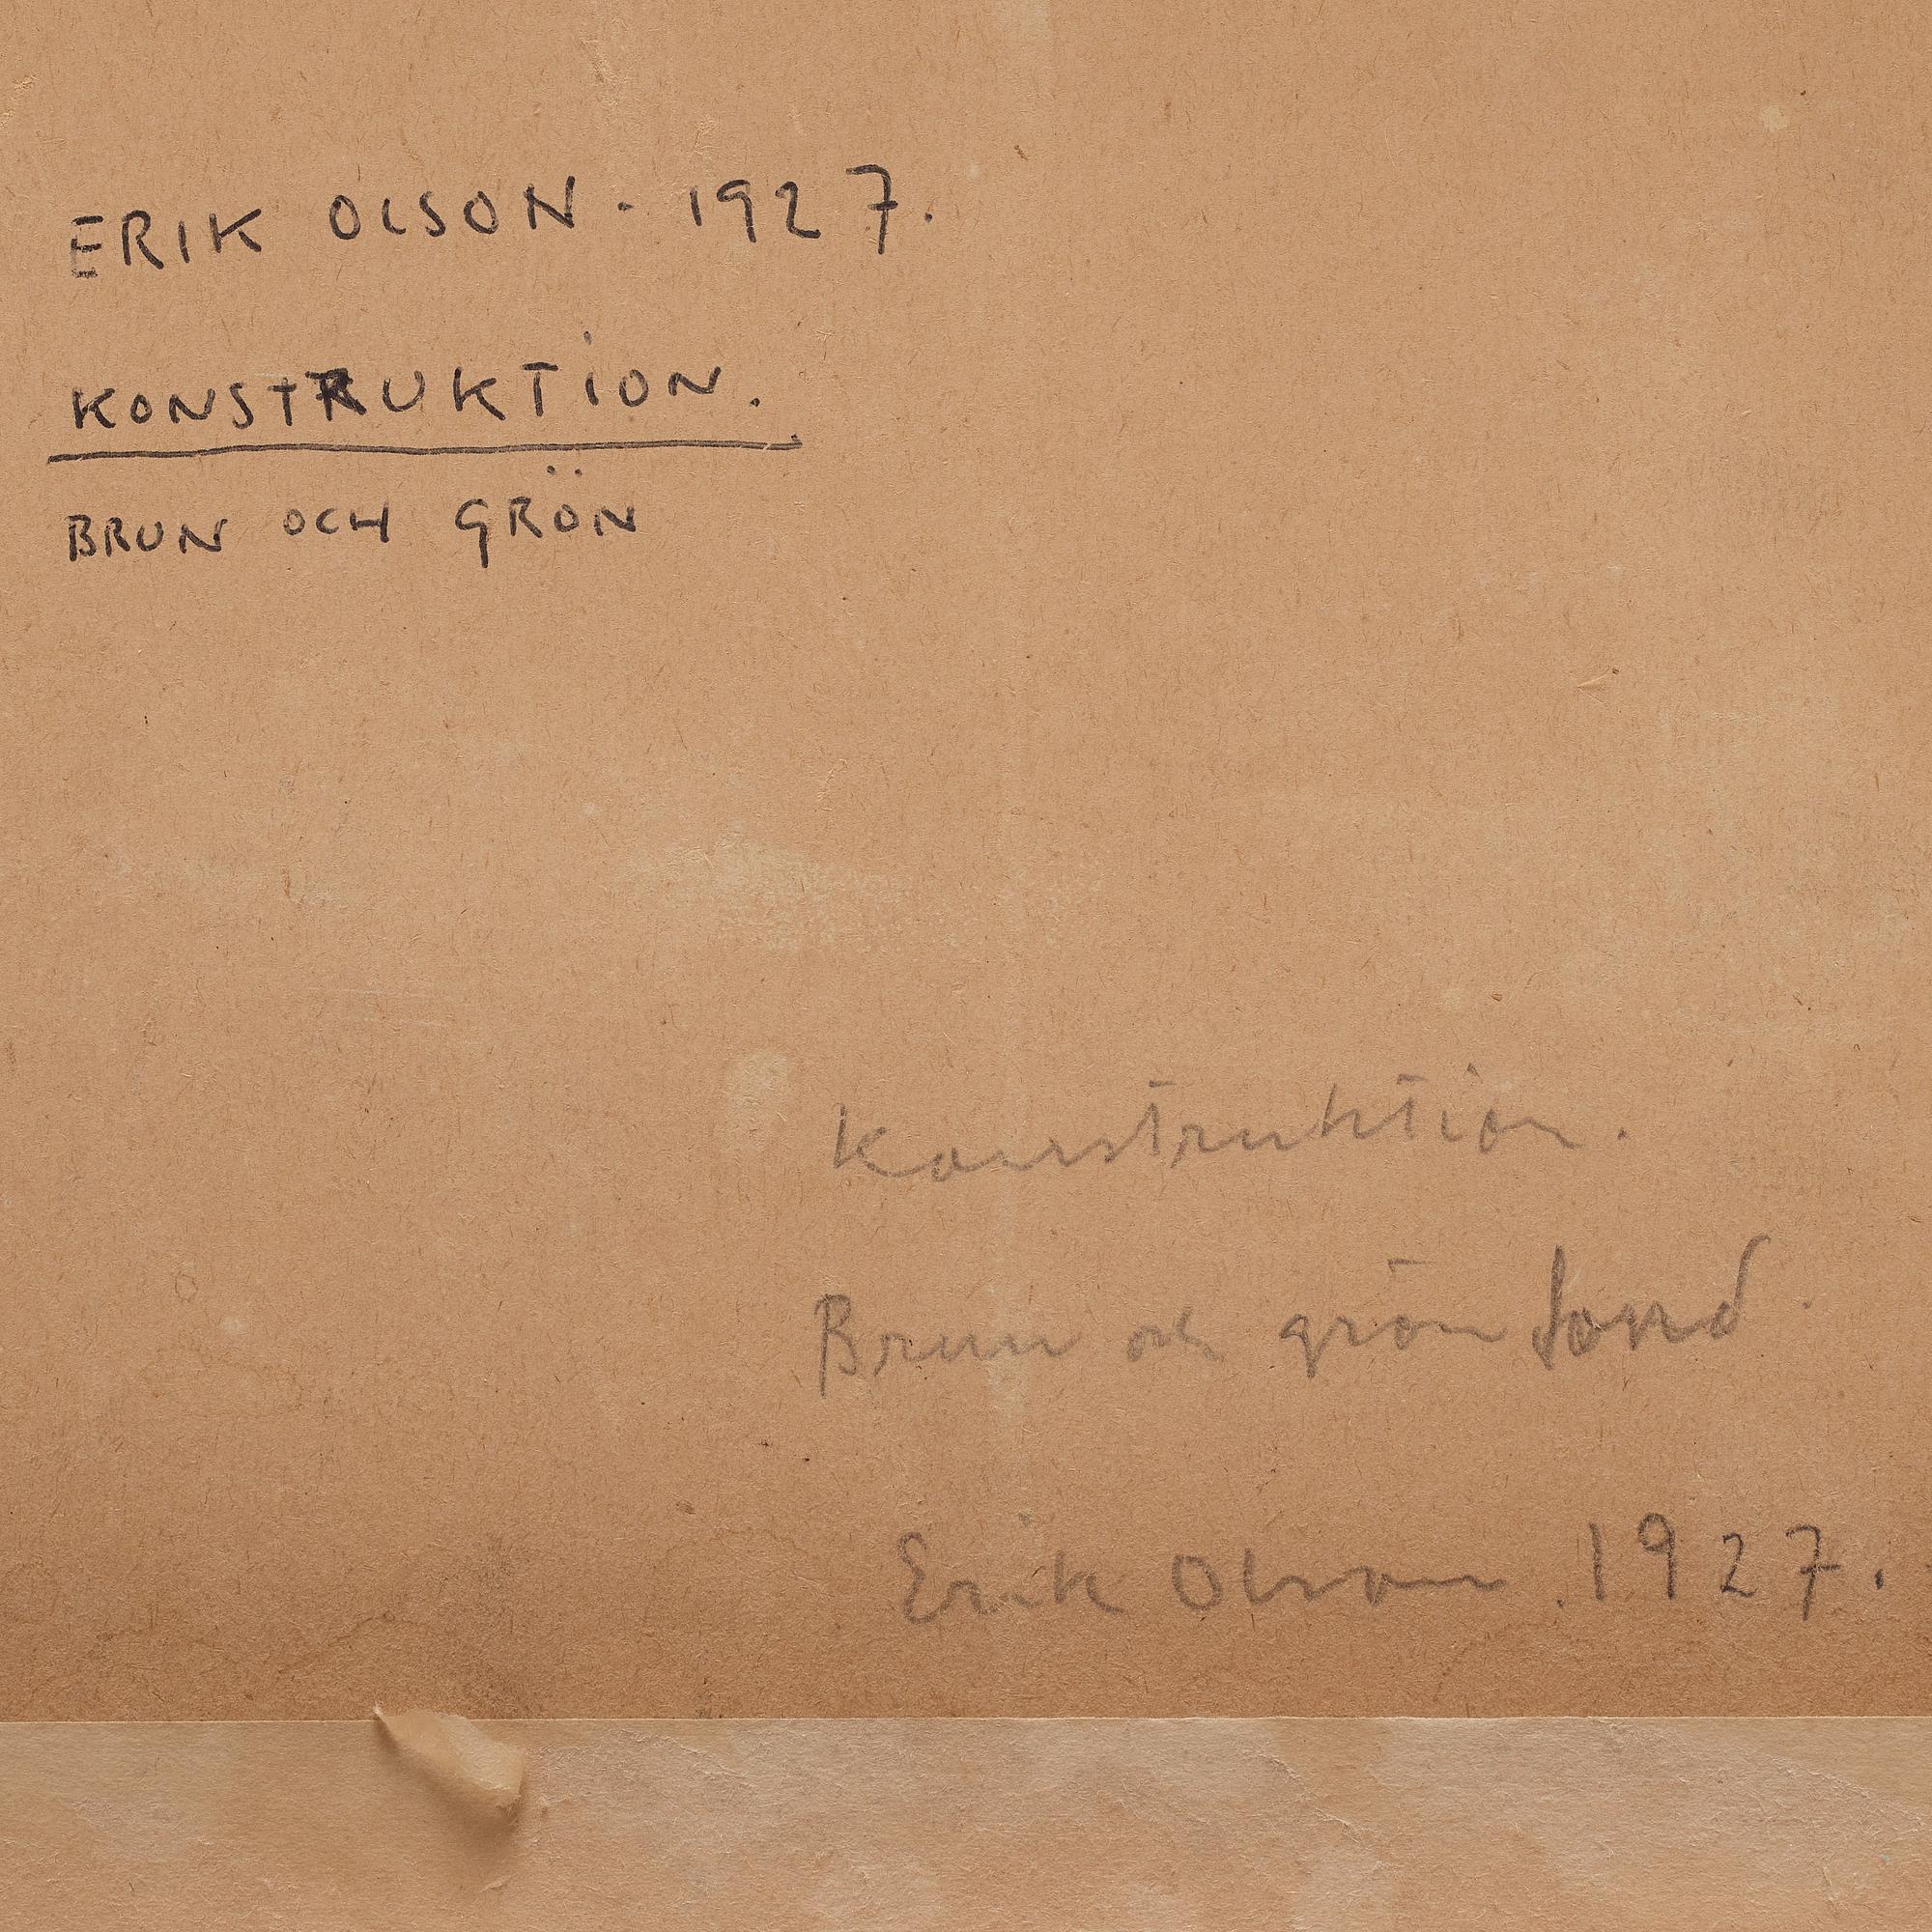 ERIK OLSON - 1927.
KONSTRUKTION.
BRUN OCH GRÖN
Konstruktion.
Brun och grön fond.
Erik Olson. 1927.